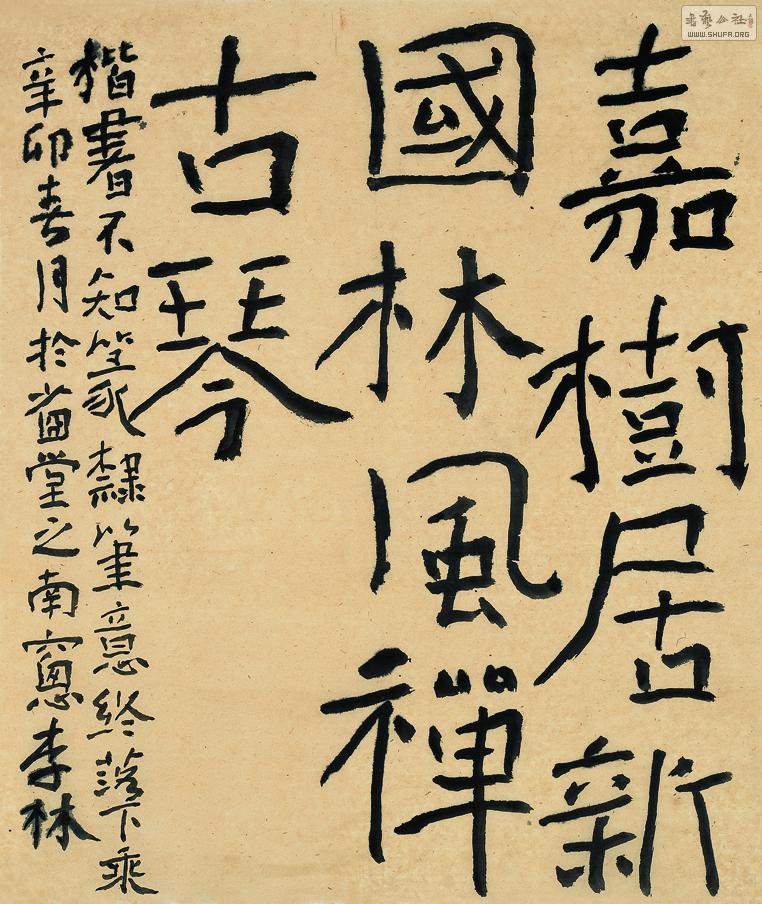 嘉樹居新
國林風禪
古琴
楷書不知篆隸筆意終落下乘
辛卯春月於畄堂之南窻李林
書藝公社
WWW.SHUFA.ORG